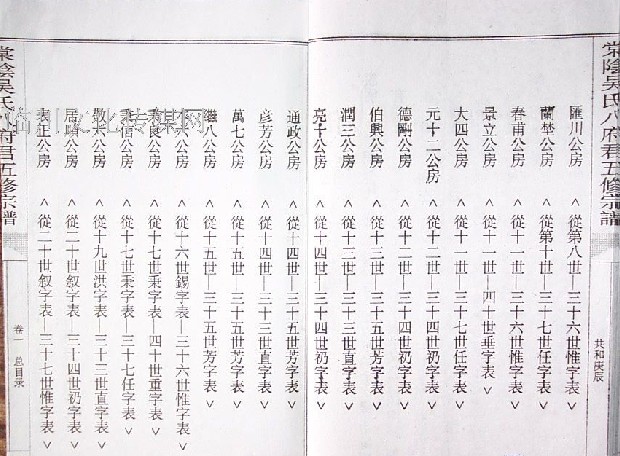 棠陰吳氏八府君五修宗譜
共和庚辰
匯川公房 ︿從第八世—三十六世惟字表﹀
蘭埜公房 ︿從第十世—三十七世任字表﹀
春甫公房 ︿從十一世—三十六世惟字表﹀
景立公房 ︿從十一世—四十世垂字表﹀
大四公房 ︿從十一世—三十七世任字表﹀
元十二公房 ︿從十二世—三十四世礽字表﹀
德剛公房 ︿從十二世—三十四世礽字表﹀
伯興公房 ︿從十二世—三十四世礽字表﹀
潤三公房 ︿從十三世—三十三世直字表﹀
亮十公房 ︿從十四世—三十四世礽字表﹀
通政公房 ︿從十四世—三十五世芳字表﹀
彥芳公房 ︿從十四世—三十三世直字表﹀
萬七公房 ︿從十五世—三十五世芳字表﹀
繼八公房 ︿從十五世—三十五世芳字表﹀
六公房 ︿從十六世錫字表—三十六世惟字表﹀
秉良公房 ︿從十七世秉字表—四十世重字表﹀
秉信公房 ︿從十七世秉字表—三十七任字表﹀
敬六公房 ︿從十九世洪字表—三十三世直字表﹀
居公房 ︿從二十世叙字表—三十四世礽字表﹀
表正公房 ︿從二十世叙字表—三十七世惟字表﹀
棠陰吳氏八府君五修宗譜
卷一 总目录
临川文化传媒网